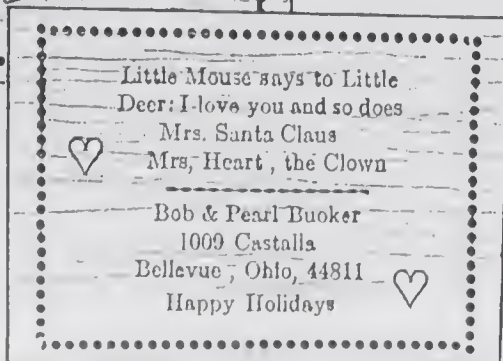 Little Mouse says to Little
Deer: I love you and so does
Mrs. Santa Claus
Mrs, Heart , the Clown
Bob & Pearl Buoker
1009 Castalla
Bellevue , Ohio, 44811
Happy Holidays